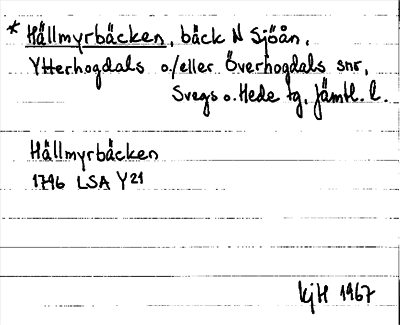 * Hällmyrbäcken, bäck N Sjöån,
Ytterhogdals o./eller Överhogdals snr,
Svegs o. Hede tg, Jämtl. l.
Hällmyrbäcken
1796 LSA Y21
kjH 1967